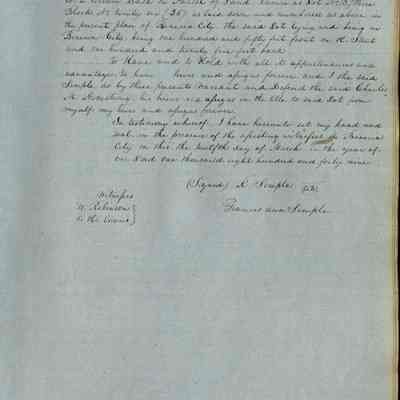 to a certain Tract or Parcel of Land known as Lot No 3 Three
Block No twenty six (26) as laid down and numbered as above in
the present plan of Benicia City. The said Lot lying and being in
Benicia City being one hundred and fifty feet front on the Street
and one hundred and twenty five feet back
To Have and to Hold with all it appurtenances and
advantages to him heirs and assigns forever and I the said
Semple do by these presents Warrant and Defend the said Charles
M. his heirs and assigns in the title to said Lot from
myself my heirs and assigns forever
In testimony whereof I have hereunto set my hand and
seal in the presence of the subscribing witnesses in Benicia
City on this the twelfth day of March in the year of
our Lord one thousand eight hundred and forty nine
(Signed) R Semple
Frances Ann Semple
Witnesses
W. Robinson